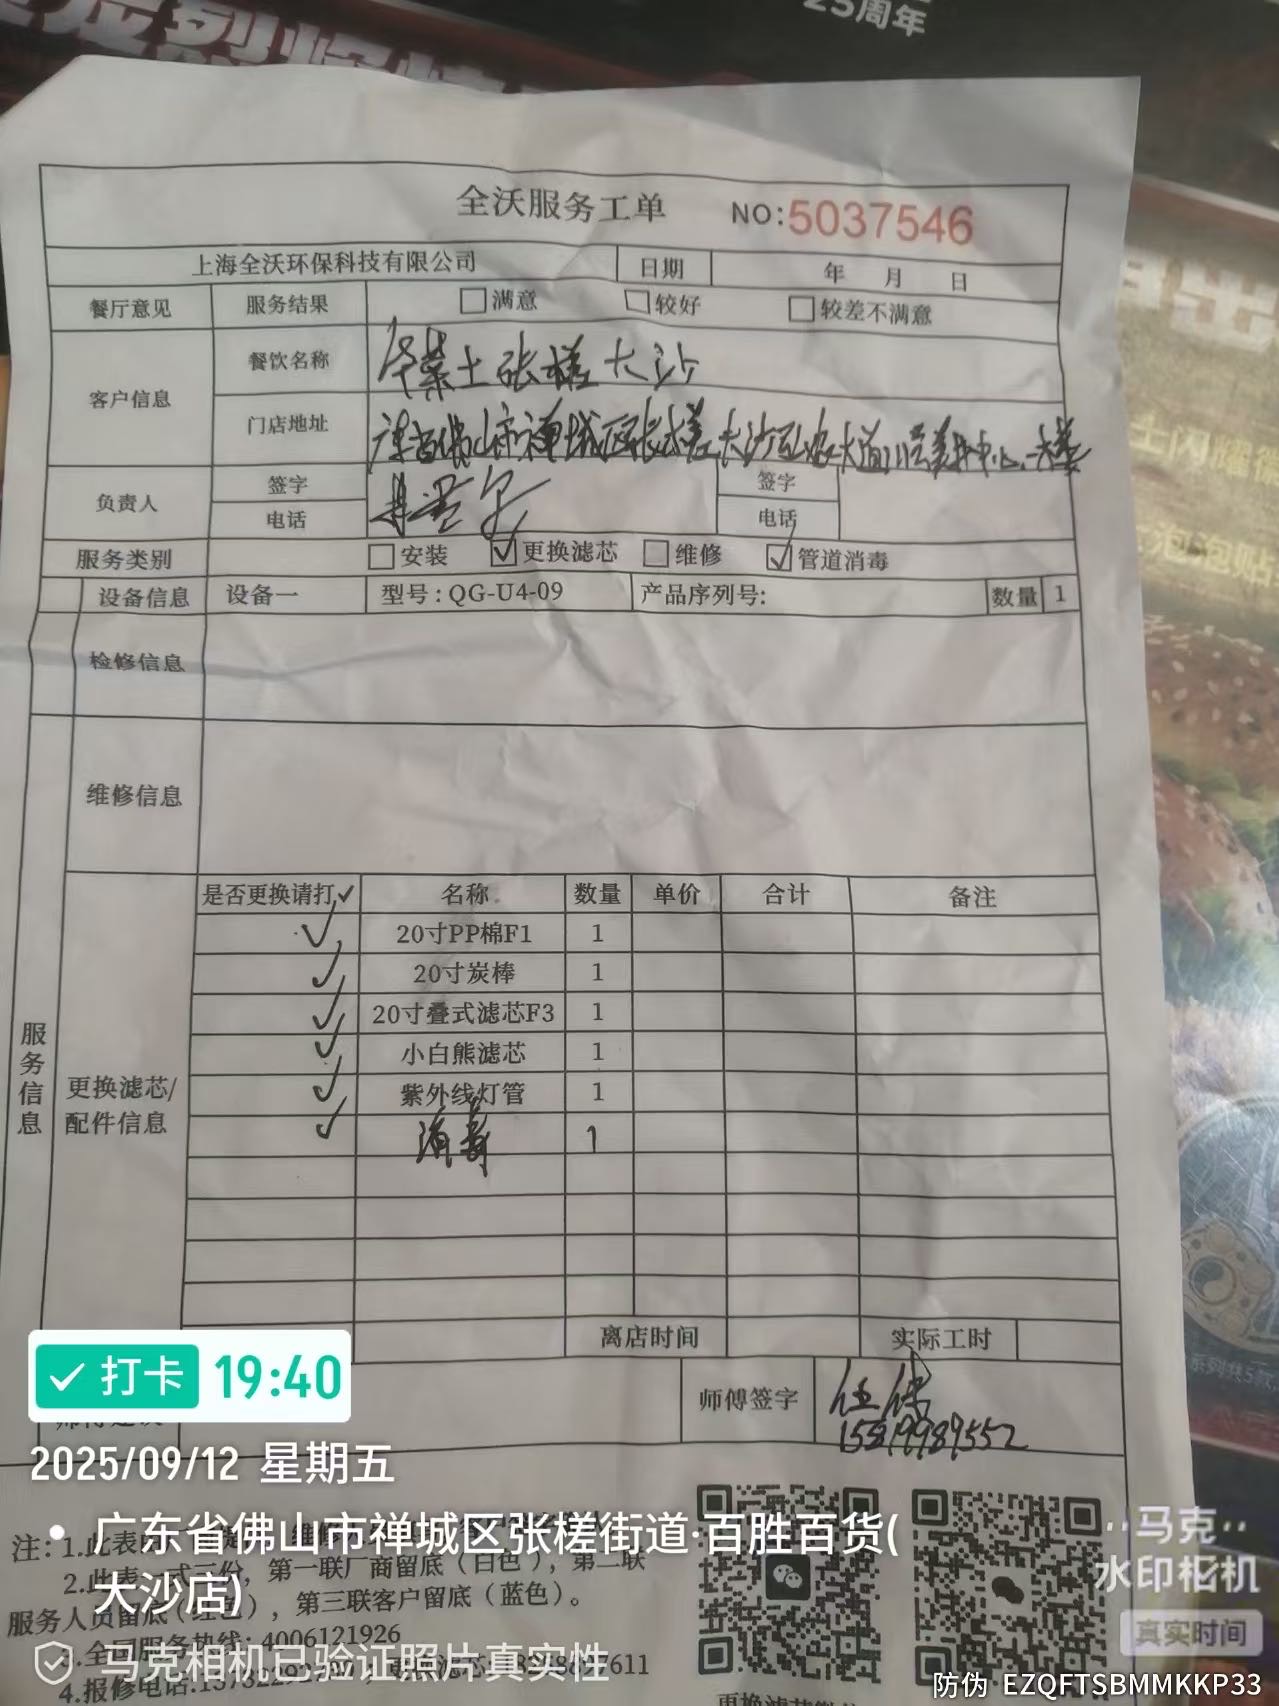 25周年
全沃服务工单 NO:5037546
上海全沃环保科技有限公司 日期 年 月 日
餐厅意见 服务结果 □满意 □较好 □较差不满意
客户信息 餐饮名称 华莱士张槎大沙
门店地址
负责人 签字 签字
电话 电话
服务类别 □安装 ☑更换滤芯 □维修 ☑管道消毒
设备信息 设备一 型号:QG-U4-09 产品序列号: 数量 1
检修信息
维修信息
服务信息
更换滤芯/
配件信息
是否更换请打✓ 名称 数量 单价 合计 备注
✓ 20寸PP棉F1 1
✓ 20寸炭棒 1
✓ 20寸叠式滤芯F3 1
✓ 小白熊滤芯 1
✓ 紫外线灯管 1
✓ 消毒 1
离店时间 实际工时
师傅签字
打卡 19:40
2025/09/12 星期五
广东省佛山市禅城区张槎街道·百胜百货(
大沙店)
注:1.此表
2.此表一式三份,第一联厂商留底(白色),第二联
服务人员留底(红色),第三联客户留底(蓝色)。
3.全国服务热线:4006121926
4.报修电话:
马克相机已验证照片真实性
马克
水印相机
真实时间
防伪 EZQFTSBMMKKP33